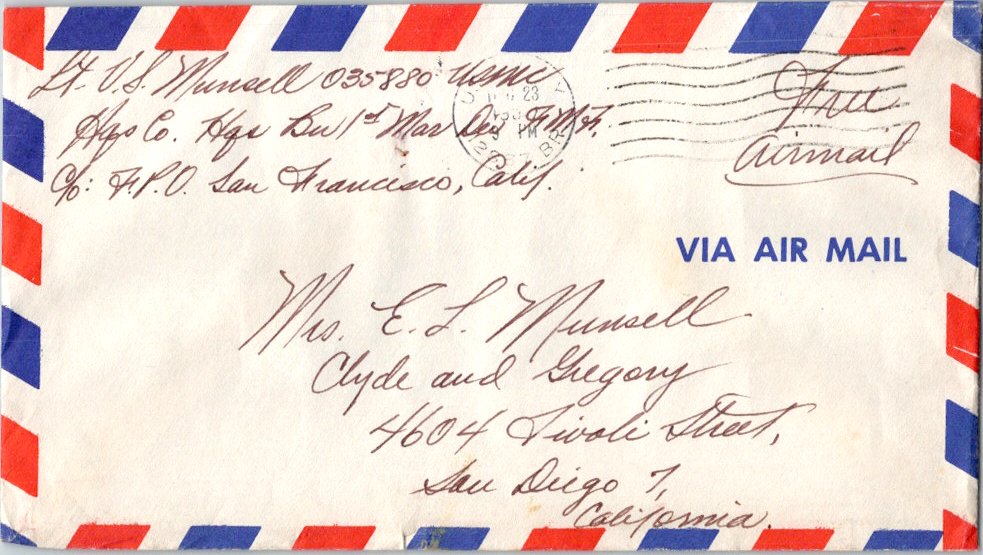 Lt. V.S. Munsell 035880 USMC
Hqs Co. Hqs Bn 1st Mar Div F.M.F.
c/o: F.P.O. San Francisco, Calif.
23
PM
Free
Airmail
VIA AIR MAIL
Mrs. E. L. Munsell
Clyde and Gregory
4604 Tivoli Street,
San Diego 7,
California.